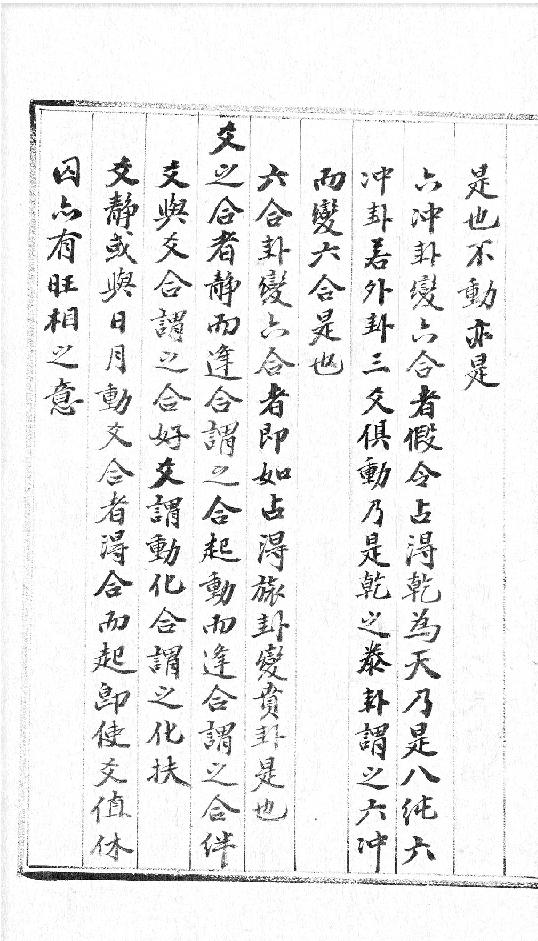 是也不動亦是
六冲卦變六合者假令占淂乾為天乃是八純六
冲卦若外卦三爻俱動乃是乾之泰卦謂之六冲
而變六合是也
六合卦變六合者即如占淂旅卦變賁卦是也
爻之合者靜而逢合謂之合起動而逢合謂之合絆
爻與爻合謂之合好爻謂動化合謂之化扶
爻靜或與日月動爻合者淂合而起即使爻值休
囚亦有旺相之意